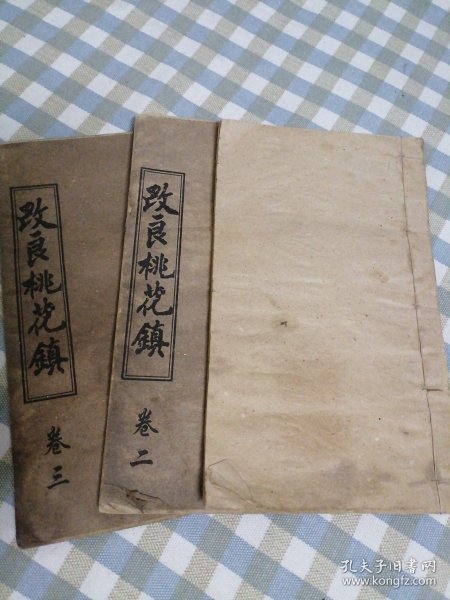 改良桃花鎮
卷三
改良桃花鎮
卷二
孔夫子旧书网
www.kongfz.com